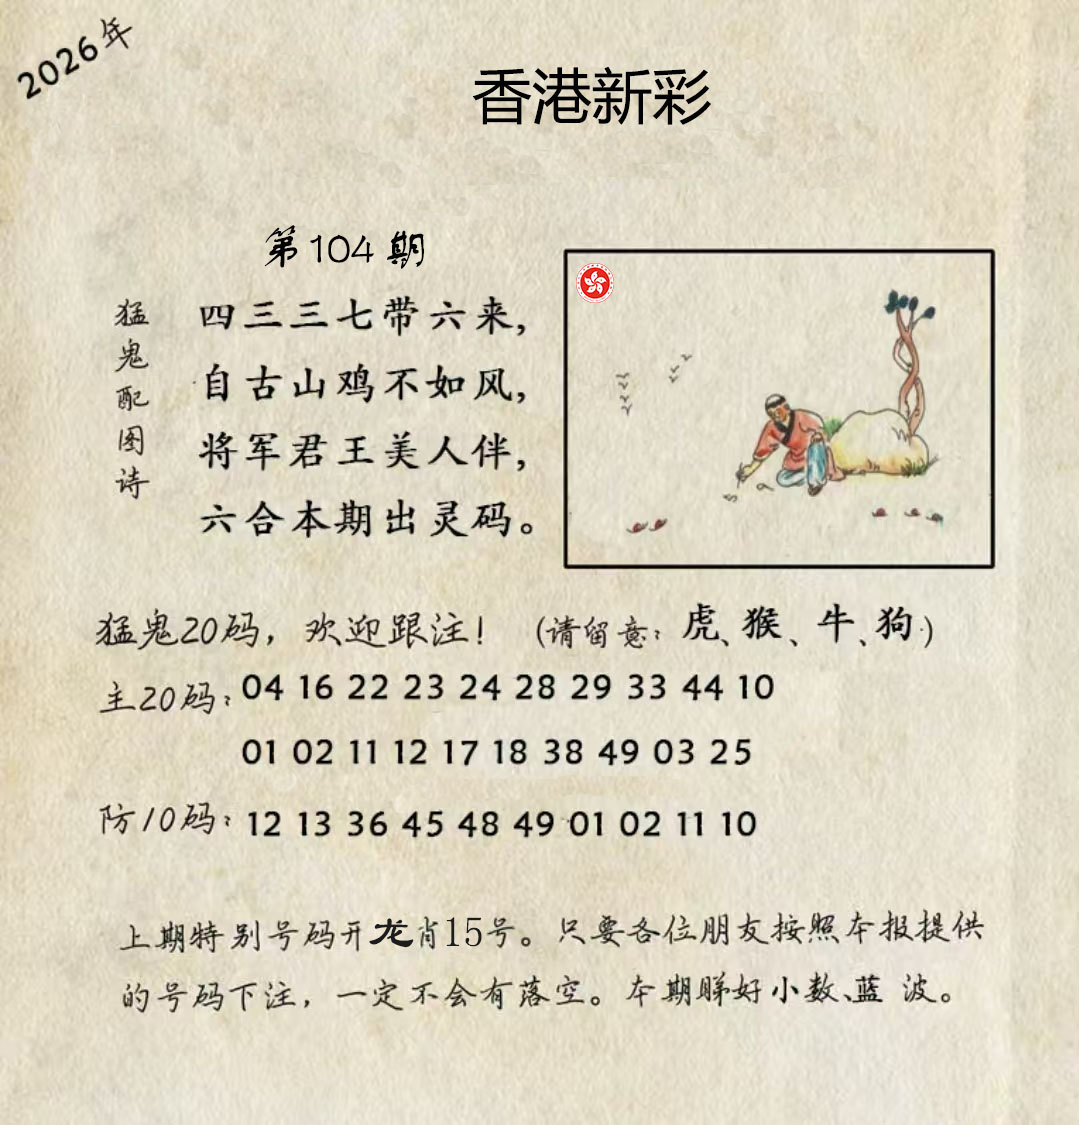 2026年
香港新彩
第104期
猛鬼配图诗
四三三七带六来,
自古山鸡不如风,
将军君王美人伴,
六合本期出灵码。
猛鬼20码，欢迎跟注！（请留意：虎、猴、牛、狗）
主20码：04 16 22 23 24 28 29 33 44 10
01 02 11 12 17 18 38 49 03 25
防10码：12 13 36 45 48 49 01 02 11 10
上期特别号码开龙肖15号。只要各位朋友按照本报提供
的号码下注，一定不会有落空。本期睇好小数、蓝波。